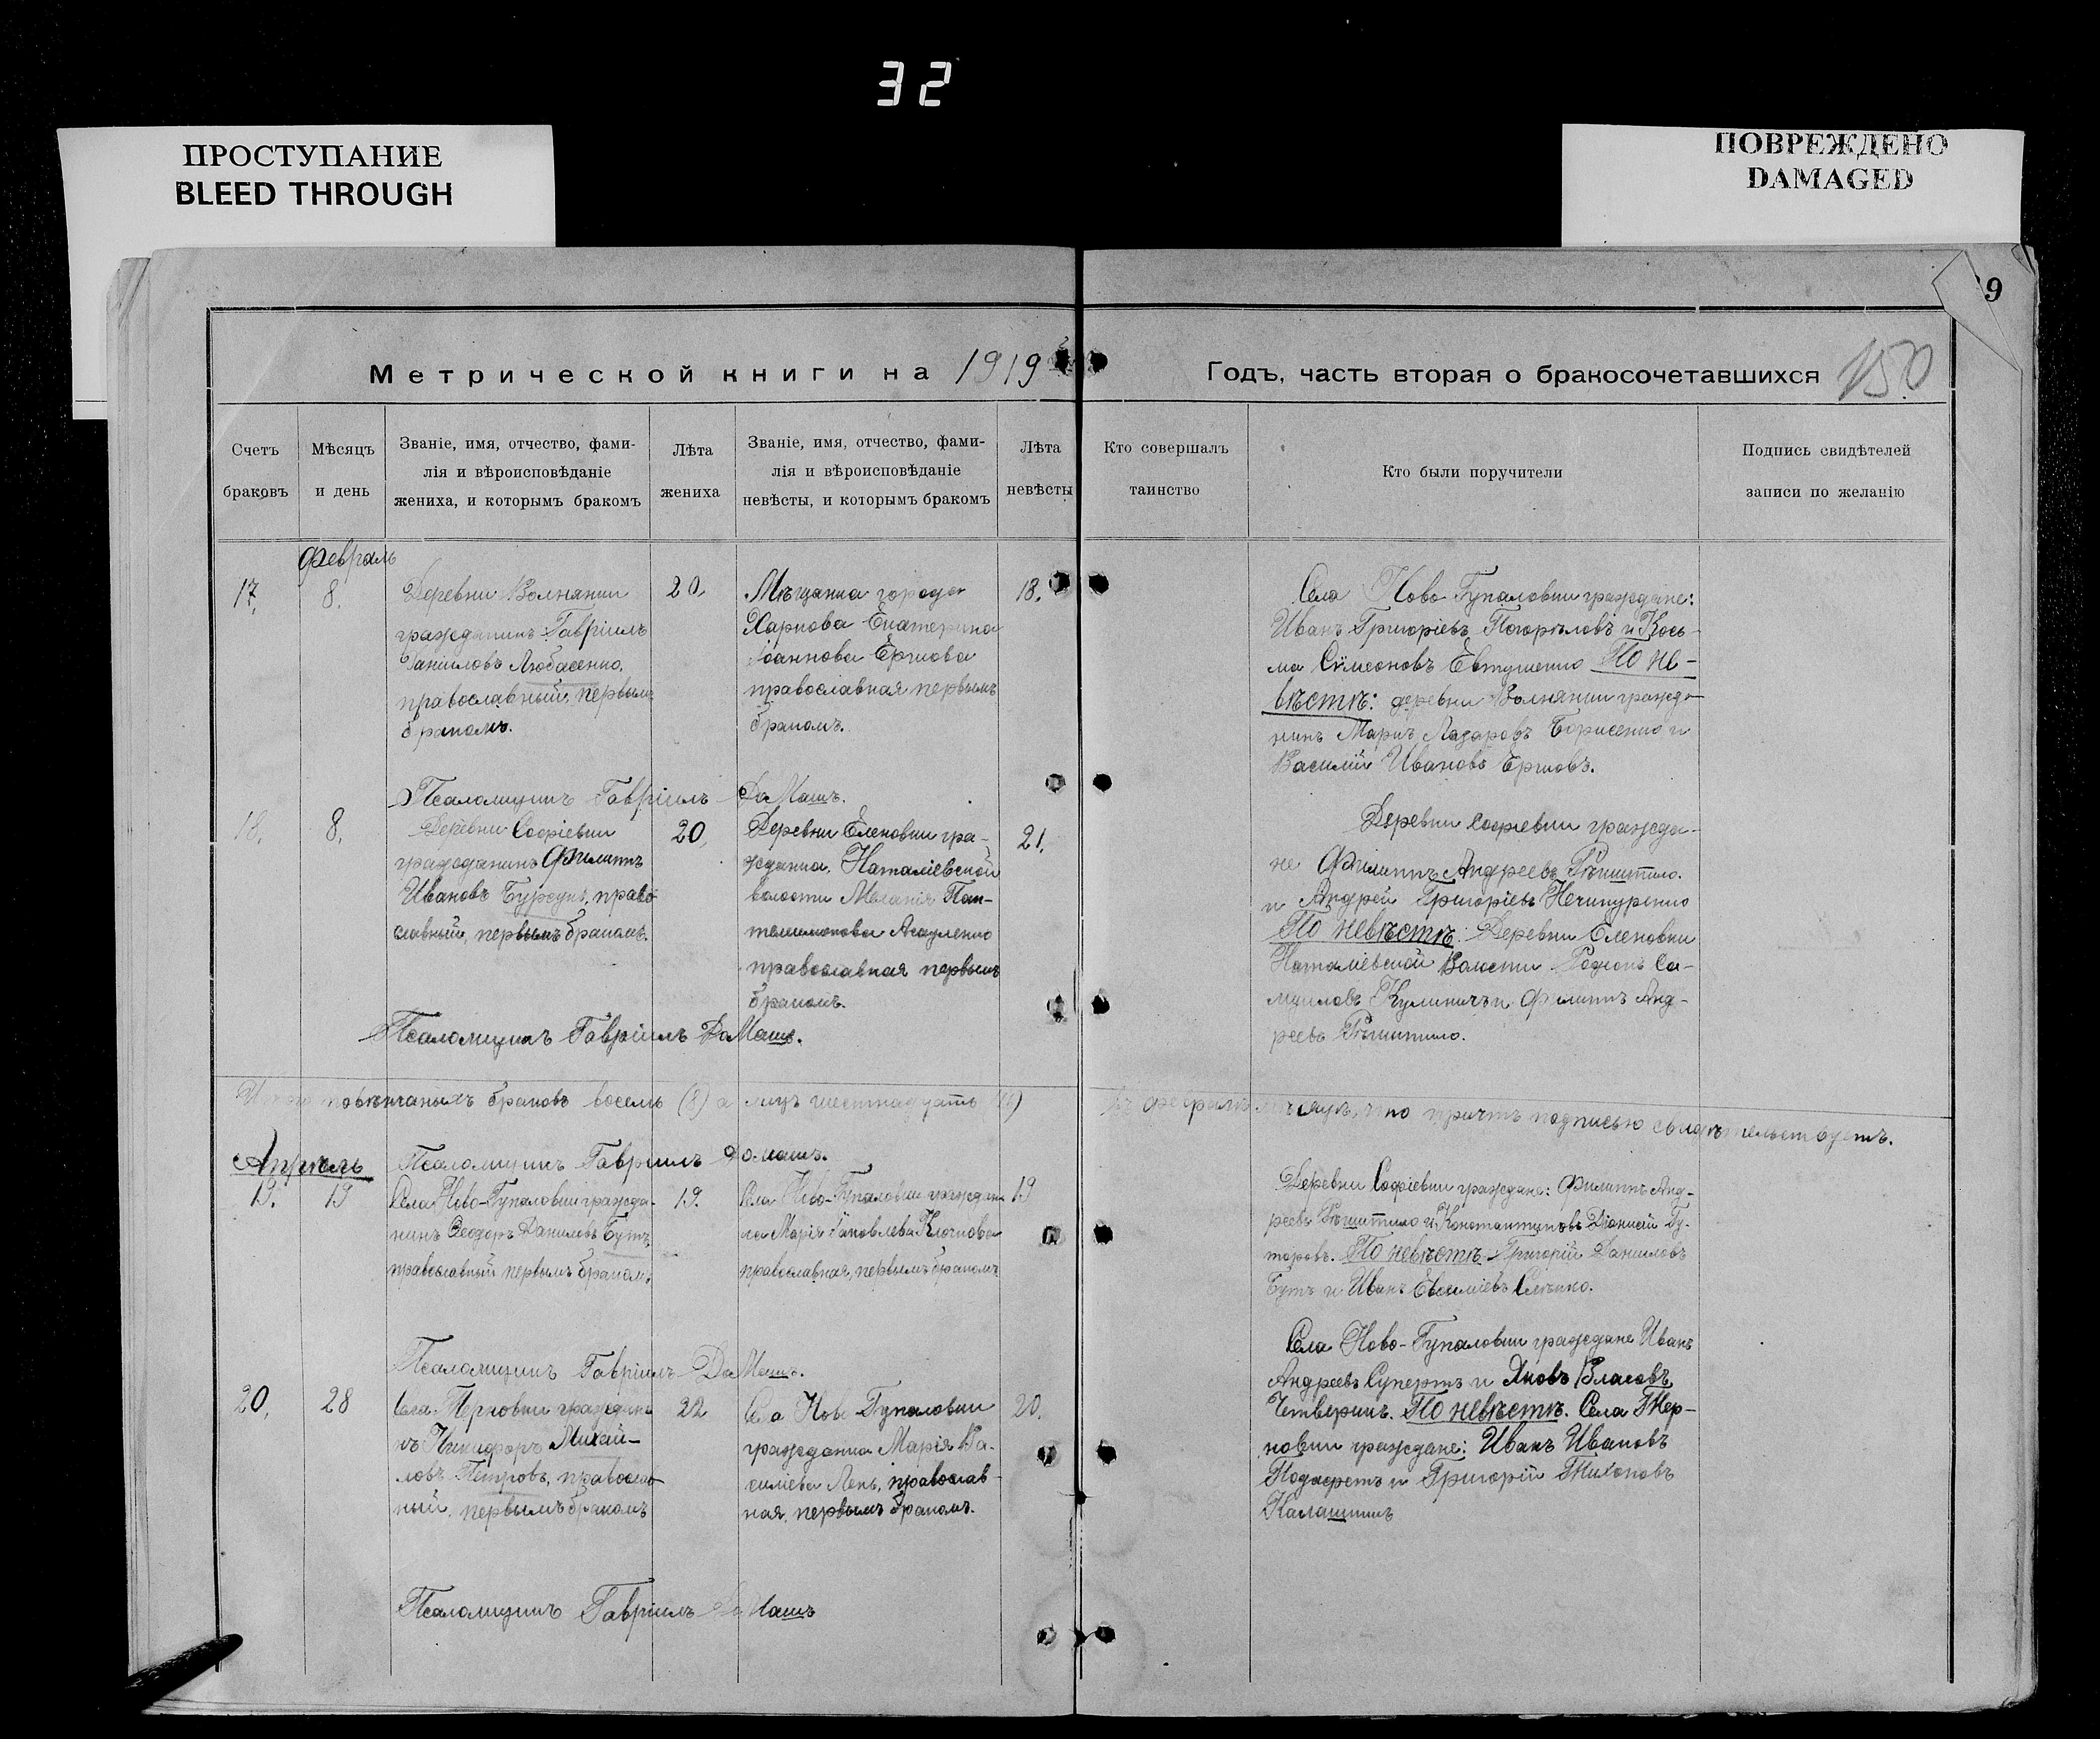 32
ПРОСТУПАНИЕ
BLEED THROUGH
ПОВРЕЖДЕНО
DAMAGED
9
Метрической книги на 1919
Годъ, часть вторая о бракосочетавшихся 150
Счетъ
браковъ
Мѣсяцъ
и день
Званіе, имя, отчество, фами-
лія и вѣроисповѣданіе
жениха, и которымъ бракомъ
Лѣта
жениха
Званіе, имя, отчество, фами-
лія и вѣроисповѣданіе
невѣсты, и которымъ бракомъ
Лѣта
невѣсты
Кто совершалъ
таинство
Кто были поручители
Подпись свидѣтелей
записи по желанію
Февраль
17.
8.
Деревни Волнянки
гражданинъ Гавріилъ
Даніиловъ Любасенко,
православный, первымъ
бракомъ.
20.
Мѣщанка города
Харкова Екатерина
Іоаннова Ершова
православная первымъ
бракомъ.
18.
Села Ново-Гупаловки граждане:
Иванъ Григоріевъ Погорѣловъ и Кось-
ма Сѵмеоновъ Евтушенко По не-
вѣстѣ: деревни Волнянки гражда-
нинъ Маркъ Лазаровъ Борисенко и
Василій Ивановъ Ершовъ.
Псаломщикъ Гавріилъ ДоМашъ.
18.
8.
Деревни Софіевки
гражданинъ Филиппъ
Ивановъ Бурсукъ, право-
славный, первымъ бракомъ.
20.
Деревни Еленовки гра-
жданка, Наталіевской
волости Меланія Пан-
телимонова Асауленко
православная первымъ
бракомъ.
21.
Деревни Софіевки гражда-
не Филиппъ Андреевъ Рѣшитко.
и Андрей Григоріевъ Нечипуренко
По невѣстѣ: Деревни Еленовки
Наталіевской Волости Родіонъ Са-
муиловъ Кулиничъ и Филиппъ Анд-
реевъ Рѣшитило.
Псаломщикъ Гавріилъ ДоМашъ.
Итого повѣнчаныхъ браковъ восемь (8) а лицъ шестнадцать (16)
въ февралѣ мѣсяцѣ, что причтъ подписью свидѣтельствуетъ.
Псаломщикъ Гавріилъ Домашъ.
Апрѣль
19.
19
Села Ново-Гупаловки гражда-
нинъ Ѳеодоръ Даниловъ Бутъ,
православный первымъ бракомъ.
19.
Села Ново-Гупаловки граждан-
ка Марія Іаковлева Клочкова
православная, первымъ бракомъ
19
Деревни Софіевки граждане: Филиппъ Анд-
реевъ Рѣшитило и Константиновъ Діонисій Гу-
торовъ. По невѣстѣ Григорій Данииловъ
Бутъ и Иванъ Евфиміевъ Слѣпко.
Псаломщикъ Гавріилъ ДоМашъ.
20.
28
Села Терновки граждани-
нъ Никифоръ Михай-
ловъ Петровъ, православ-
ный, первымъ бракомъ
22
Села Ново-Гупаловки
гражданка Марія Ва-
силіева Лень, православ-
ная, первымъ бракомъ.
20.
Села Ново-Гупаловки граждане Иванъ
Андреевъ Супертъ и Яковъ Власовъ
Четверикъ. По невѣстѣ. Села Тер-
новки граждане: Иванъ Ивановъ
и Григорій Тихоновъ
Калашникъ
Псаломщикъ Гавріилъ ДоМашъ